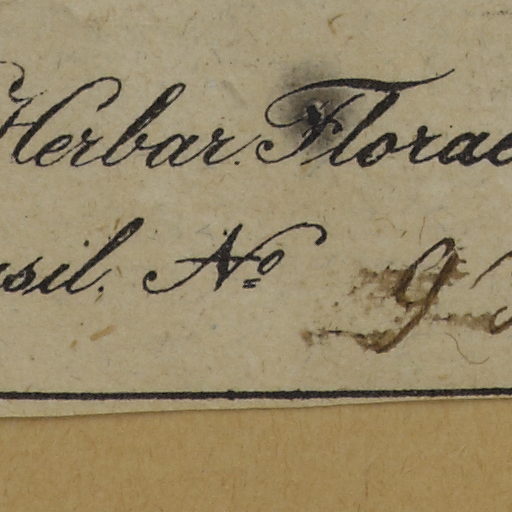 Herbar. Florae
asil. No 9